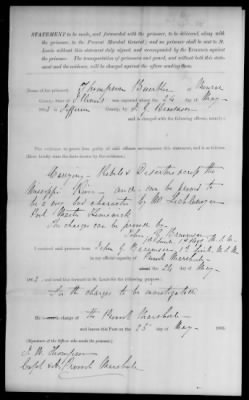 STATEMENT to be made, and forwarded with the prisoner, to be delivered, along with
the prisoner, to the Provost Marshal General; and no prisoner shall be sent to St.
Louis without this statement duly signed and accompanied by the EVIDENCE against
the prisoner. The transportation of prisoners not guard, and without both this state-
ment and the evidence, will be charged against the officer sending them.
Name of the prisoner, Thompson
County, State of Illinois was captured about the 24 day of May
1863 in Jefferson County, by J. G.
and is charged with the following offence, namely:
The evidence to prove him guilty of said offence accompanies this statement, and is as follows:
(Here briefly state the facts shown by the evidence.)
Carrying Rebels Deserters across the
River and can be proved to
be a very bad character by Mr
Post Master Kimmswick
The charge can be proved by
John G.
1st Lieut 1st Regt M.S.M.
I received said prisoner from John G. 1st Lieut M.S.M.
in my official capacity of Provost Marshal
about the 24 day of May
1863, and send him forward to St. Louis for the following purpose:
for the charges to be investigated
He in charge of the Provost Marshal
and leaves this Post on the 25 day of May 1863.
(Signature of the Officer who sends the prisoner.)
J. W. Thompson
Capt & A Provost Marshal